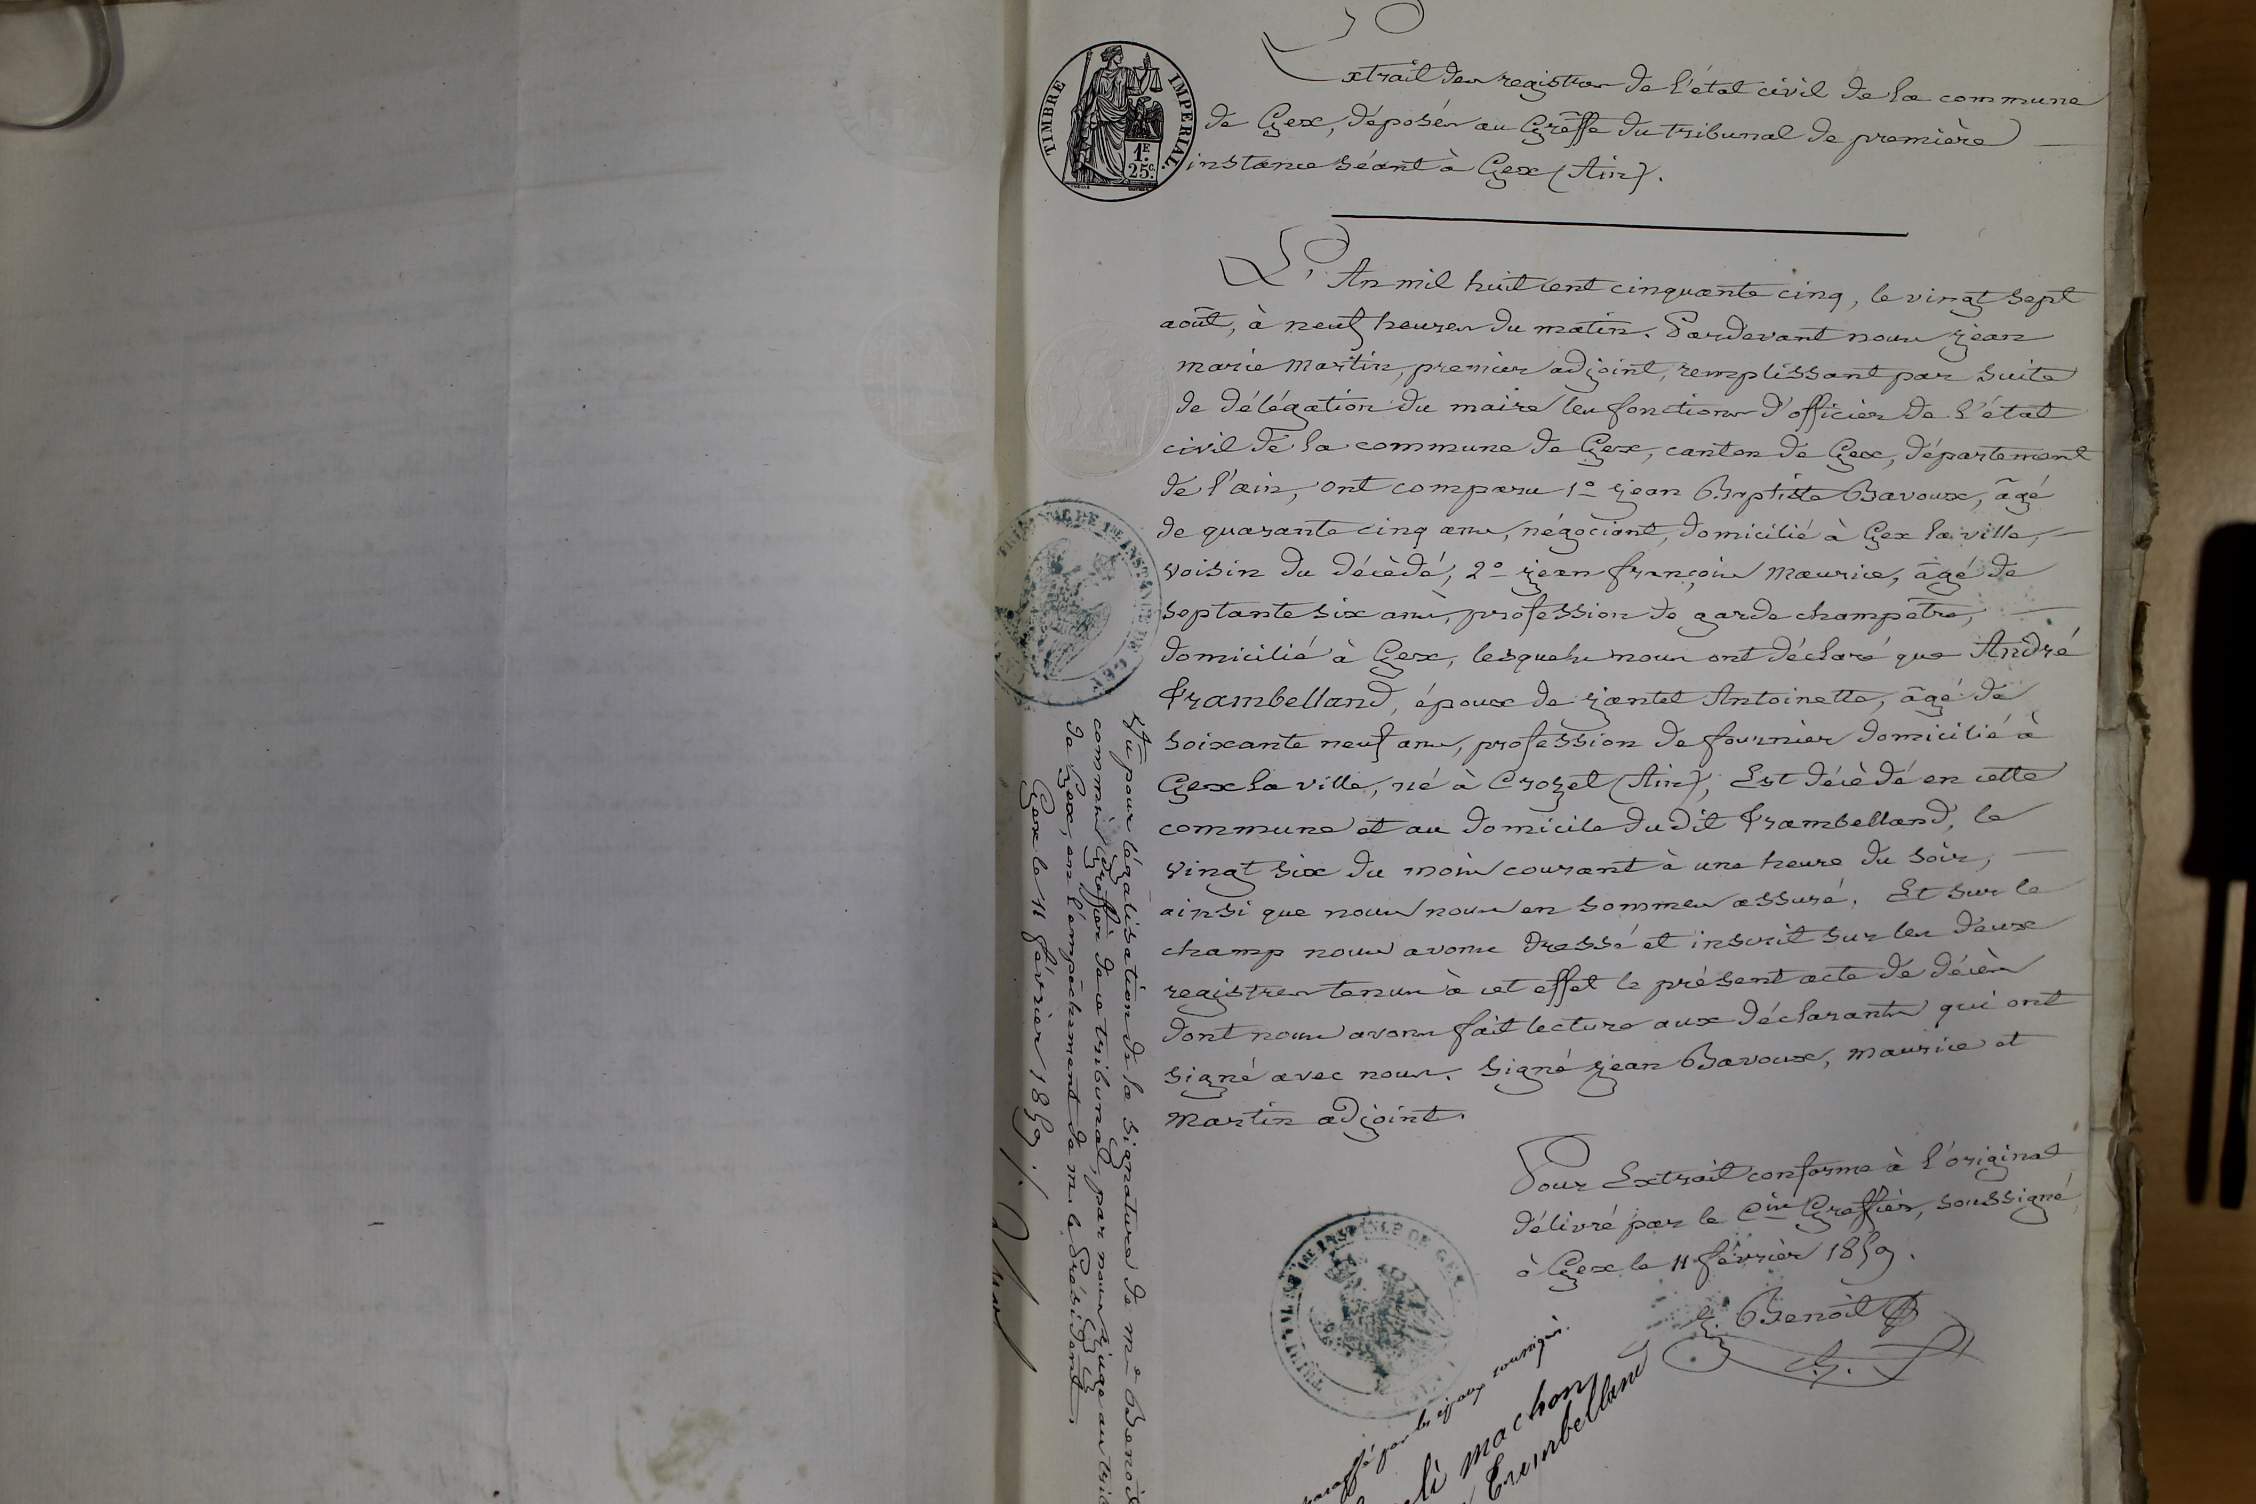 TIMBRE IMPERIAL.
1F
25c.
Extrait des registres de l'état civil de la commune
de Gex, déposés au Greffe du tribunal de première
instance séant à Gex (Ain).
L'An mil huit cent cinquante cinq, le vingt sept
août, à neuf heures du matin. Pardevant nous jean
marie Martin, premier adjoint, remplissant par suite
de délégation du maire les fonctions d'officier de l'état
civil de la commune de Gex, canton de Gex, département
de l'ain, ont comparu 1º jean Baptiste Bavoux, âgé
de quarante cinq ans, négociant, domicilié à Gex la ville,
voisin du décèdé, 2º jean françois Maurice, âgé de
septante six ans, profession de garde champêtre,
domicilié à Gex, lesquels nous ont déclaré que André
Trambelland, époux de jantet Antoinette, âgé de
soixante neuf ans, profession de fournier domicilié à
Gex la ville, né à Crozet (Ain), Est décèdé en cette
commune et au domicile dudit Trambelland, le
vingt six du mois courant à une heure du soir,
ainsi que nous nous en sommes assuré. Et sur le
champ nous avons dressé et inscrit sur les deux
registres tenus à cet effet le présent acte de décès
dont nous avons fait lecture aux déclarants qui ont
signé avec nous. Signé jean Bavoux, Maurice et
Martin adjoint.
Pour Extrait conforme à l'original
délivré par le Cis Greffier, soussigné,
à Gex le 11 février 1859.
Benoit
TRIBUNAL DE 1RE INSTANCE DE GEX
TRIBUNAL DE 1RE INSTANCE DE GEX
Vu pour légalisation de la signature de Me Benoit
commis Greffier de ce tribunal, par nous juge au
de Gex, en l'empêchement de m. le Président.
Gex le 11 février 1859.
paraffé par les époux soussignés.
machon
Trambelland